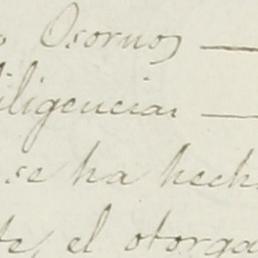 Osorno
iligencias
se ha hech
te, el otorga